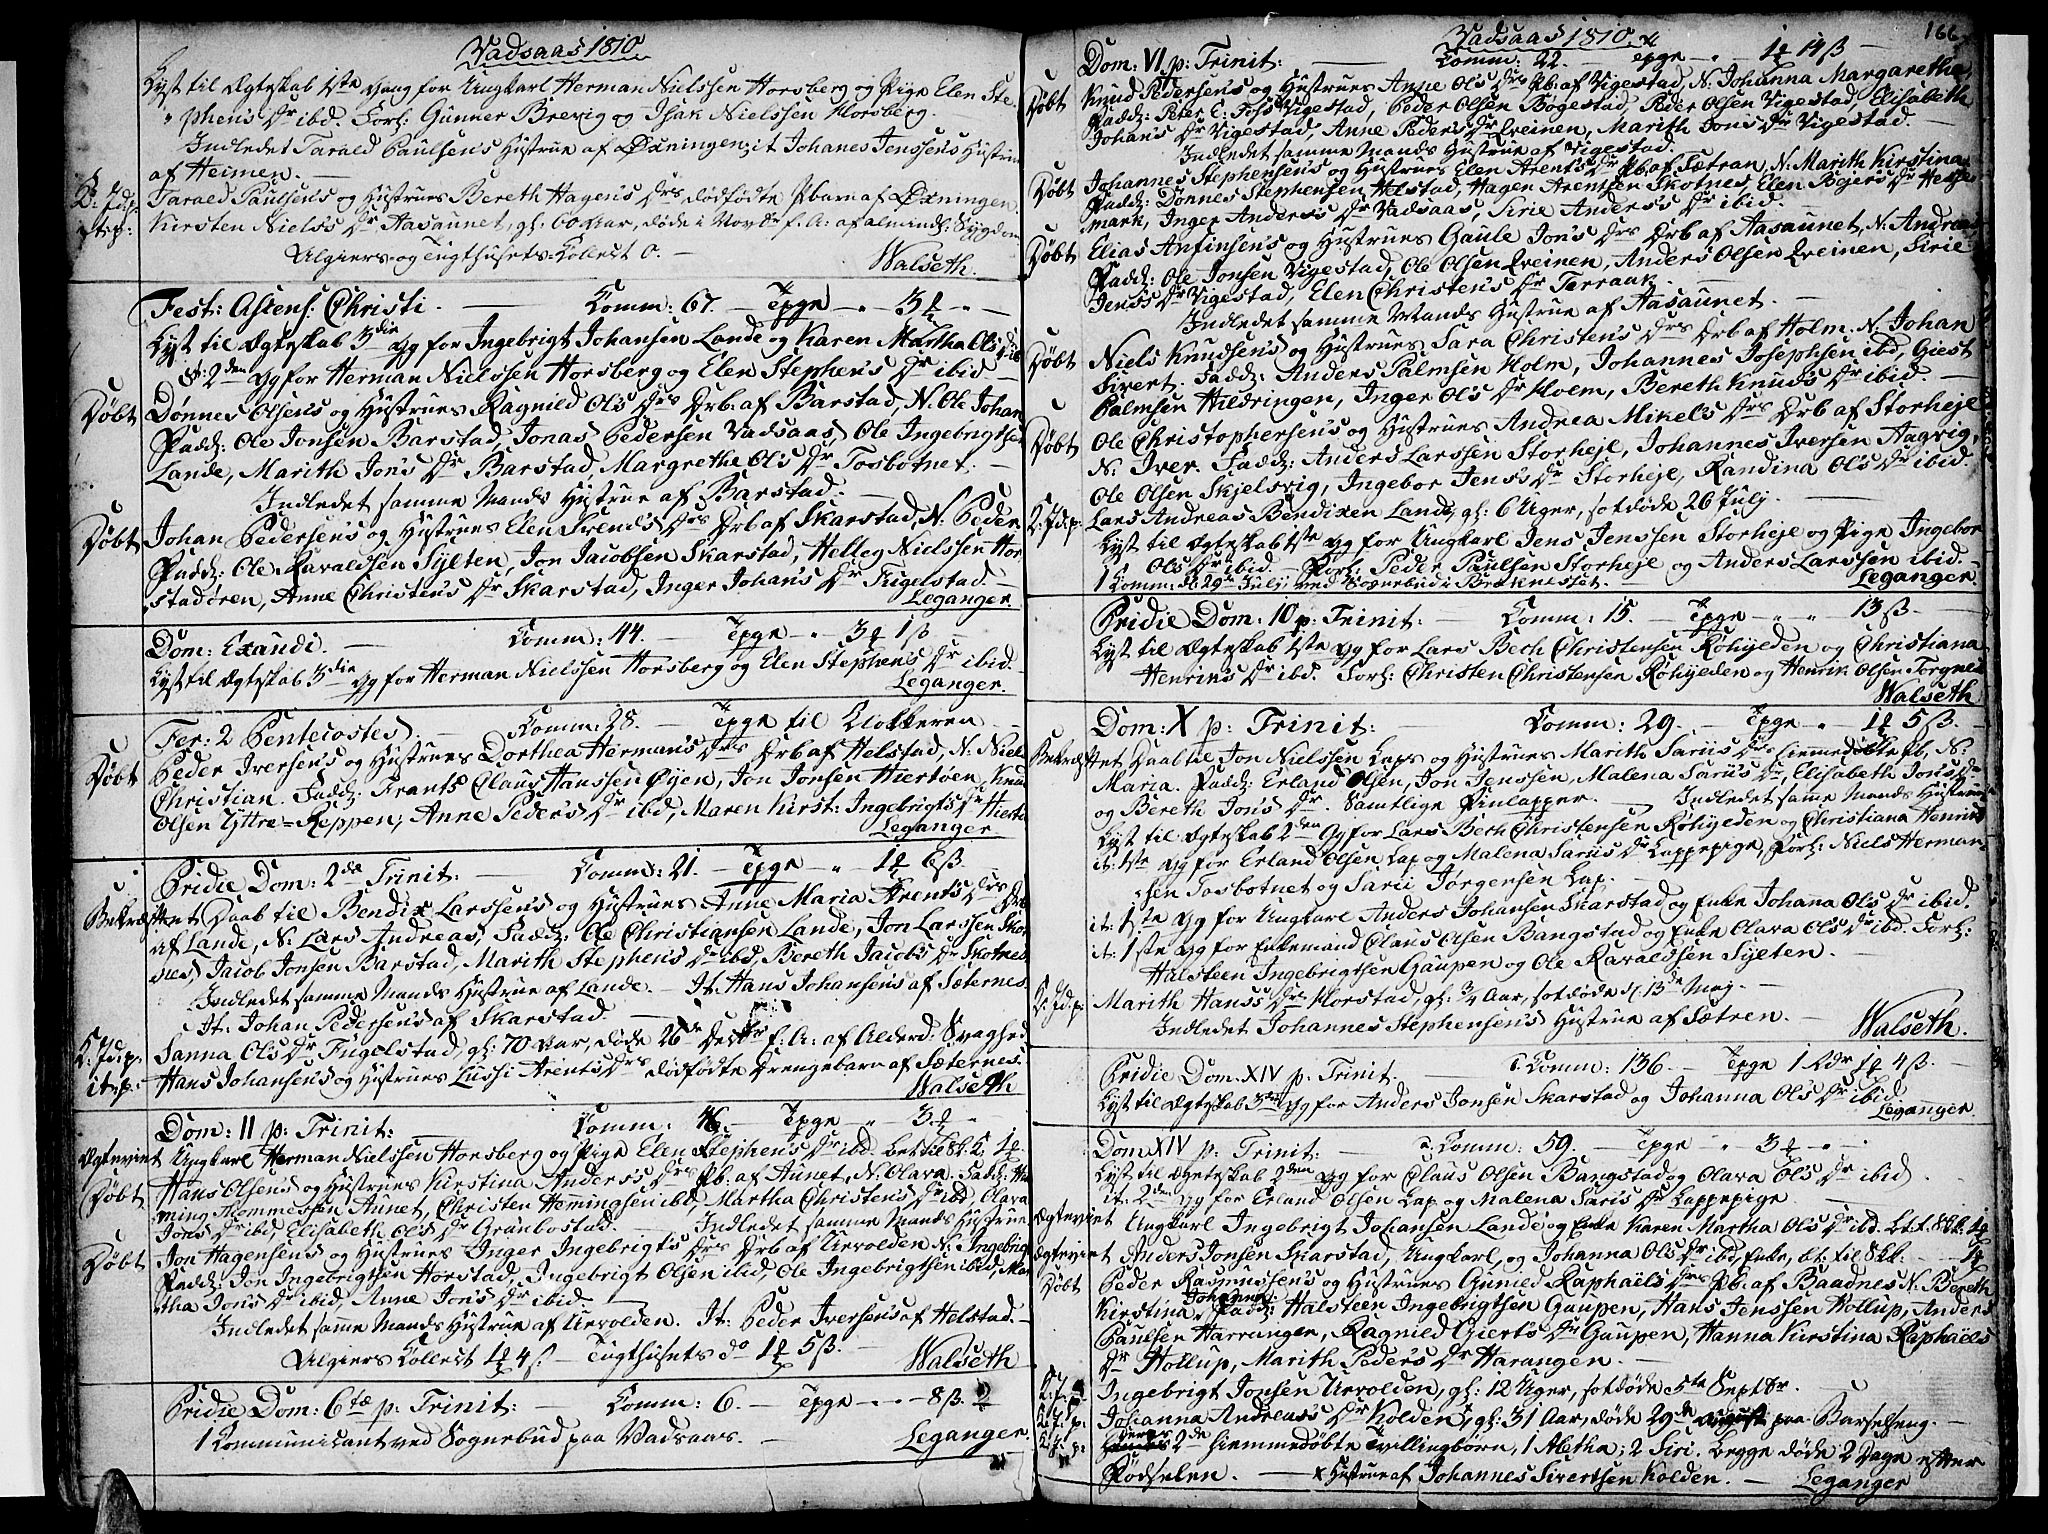 Vadsaas 1810.
Lyst til Ægteskab 1ste Gang for Ungkarl Herman Nielssen Horsberg og Pige Elen Ste-
phens Dr ibid. Forl: Gunner Brevig og Isak Nielssen Horsberg.
Indledet Tarald Paulsen's Hustrue af Dxningen; it Johanes Jenssen's Hustrue
af Heimen.
B: Jd: p: Tarald Paulsen's og Hustrues Bereth Hagen's Drs dödfödte Pbarn af Dxningen.
it p: Kirsten Niels's Dr Aasaunet, gl: 60 Aar, döde i Novbr f. A: af almindl: Sygdom
Algiers og Tugthusets Collect 0.
Walseth.
Fest: Ascens: Christi. Comm: 67. Tpge " 3
Lyst til Ægteskab 3die Gg for Ingebrigt Johansen Lande og Karen Martha Ols Dr ibid
it: 2den Gg for Herman Nielssen Horsberg og Elen Stephen's Dr ibid
Döbt Dönnes Olsen's og Hustrues Ragnild Ol's Drs Drb: af Barstad, N: Ole Johan
Fadd: Ole Jonsen Barstad, Jonas Pedersen Vadsaas, Ole Ingebrigtsen
Lande, Marith Jon's Dr Barstad, Margrethe Ol's Dr Tosbotnet.
Indledet samme Mands Hustrue af Barstad.
Döbt Johan Pedersen's og Hustrues Elen Svend's Drs Drb af Skarstad, N: Peder
Fadd: Ole Ravaldsen Sylten, Jon Jacobsen Skarstad, Helleg Nielssen Hor-
stadören, Anne Christen's Dr Skarstad, Inger Johan's Dr Fugelstad.
Leganger.
Dom: Exaudi. Comm: 44. Tpge " 3 1 ß
Lyst til Ægteskab 3die Gg for Herman Nielssen Horsberg og Elen Stephens Dr ibid.
Leganger.
Fer: 2 Pentecostes. Comm: 28. Tpge til Klokkeren
Döbt Peder Iversen's og Hustrues Dorthea Herman's Drs Drb af Helstad, N. Niels
Christian. Fadd: Frants Claus Hanssen Öyen, Jon Jonsen Hiertöen, Knud
Olsen Yttre-Reppen, Anne Peder's Dr ibid, Maren Kirst: Ingebrigts Dr Hiertö
Leganger
Pridie Dom: 2da Trinit: Comm: 21. Tpge " 1 6 ß.
Bekræftet Daab til Bendix Larssen's og Hustrues Anne Maria Arents Drs Drb
af Lande, N: Lars Andreas, Fadd: Ole Christiansen Lande, Jon Larssen Skot-
nes, Jacob Jonsen Barstad, Marith Stephens Dr ibd, Bereth Jacobs Dr Skotnes
Indledet samme Mands Hustrue af Lande. It: Hans Johansens af Sæternes.
It: Johan Pedersen's af Skarstad.
B: Jd: p: Sanna Ol's Dr Fugelstad, gl: 70 Aar, döde 26de Decbr f: A: af Alderd: Svaghed
it: p: Hans Johansen's og Hustrues Lussi Arents Drs dödfödte Drengebarn af Sæternes.
Walseth
Dom: 11 p: Trinit: Comm: 46. Tpge " 3
Ægteviet Ungkarl Herman Nielssen Horsberg og Pige Elen Stephen's Dr ibd.
Döbt Hans Olsen's og Hustrues Kirstina Anders's Drs Pb: af Aunet, N: Olava. Fadd: He-
ming Mommessen Aunet, Christen Hemmingsen ibd, Martha Christens Dr ibd, Olava
Jons Dr ibd, Elisabeth Ols Dr Granbostad. Indledet samme Mands Hustrue
Döbt Jon Hagensens og Hustrues Inger Ingebrigt's Drs Drb af Urvolden N: Ingebrigt
Fadd: Jon Ingebrigtsen Horstad, Ingebrigt Olsen ibid, Ole Ingebrigtsen ibid, Mar-
tha Jon's Dr ibid, Anne Jon's Dr ibid
Indledet samme Mands Hustrue af Urvolden. It: Peder Iversen's af Helstad.
Algiers Collect 1 4 ß Tugthusets do 1 5 ß.
Walseth
Pridie Dom: 6tæ p: Trinit: Comm: 6. Tpge " 8 ß
1 Communicant ved Sognebud paa Vadsaas.
Leganger.
Vadsaas 1810.
166
Dom: VI p: Trinit: Comm: 22. Tpge " 1 14 ß
Döbt Knud Pedersen's og Hustrues Anne Ol's Drs Pb: af Vigestad, N. Johanna Margaretha,
Fadd: Peter E: Foss Vigestad, Peder Olsen Bogestad, Peder Olsen Vigestad, Elisabeth
Johan's Dr Vigestad, Anne Peder's Dr Qveinen, Marith Jon's Dr Vigestad.
Indledet samme Mands Hustrue af Vigestad.
Döbt Johannes Stephensen's og Hustrues Elen Arent's Drs Pb af Sætran, N. Marith Kirstina
Fadd: Dönnes Stephensen Helstad, Hagen Arentsen Skotnes, Elen Bejers Dr Heste-
mark, Inger Anders's Dr Vadsaas, Sirie Anders's Dr ibid.
Döbt Elias Anfinsen's og Hustrues Gaule Jon's Drs Drb af Aasaunet, N: Andreas
Fadd: Ole Jonsen Vigestad, Ole Olsen Qveinen, Anders Olsen Qveinen, Sirie
Jens's Dr Vigestad, Elen Christen's Dr Terraak.
Indledet samme Mands Hustrue af Aasaunet.
Döbt Niels Knudsen's og Hustrues Sara Christen's Drs Drb af Holm. N. Johan
Sivert. Fadd: Anders Palmsen Holm, Johannes Josephsen ibd, Giest
Palmsen Hildringen, Inger Ol's Dr Holm, Bereth Knud's Dr ibid.
Döbt Ole Christophersen's og Hustrues Andrea Mikel's Drs Drb af Storheje
N. Iver. Fadd: Anders Larssen Storheje, Johannes Iversen Aagvig,
Ole Olsen Skjelsvig, Ingebor Jens's Dr Storheje, Randina Ol's Dr ibid.
B: Jd: p: Lars Andreas Bendixen Lande, gl: 6 Uger, sotdöde 26 July.
Lyst til Ægteskab 1ste Gg for Ungkarl Jens Jenssen Storheje og Pige Ingebor
Ols Dr ibid. Forl: Peder Paulsen Storheje og Anders Larssen ibid.
1 Comm: d 29de July ved Sognebud i Brækneset.
Leganger
Pridie Dom: 10 p: Trinit: Comm: 15. Tpge " " 13 ß
Lyst til Ægteskab 1ste Gg for Lars Bech Christensen Röhylden og Christiana
Henriks Dr ibd. Forl: Christen Christensen Röhylden og Henrik Olsen Torgnes
Walseth
Dom: X p: Trinit: Comm: 29. Tpge " 1 5 ß.
Bekræftet Daab til Jon Nielssen Laps og Hustrues Marith Sariis Drs hiemmedöbte Pb, N:
Maria. Fadd: Erland Olsen, Jon Jenssen, Malena Sariis Dr, Elisabeth Jon's Dr
og Bereth Jon's Dr. Samtlige Finlapper. Indledet same Mands Hustrue
Lyst til Ægteskab 2den Gg for Lars Bech Christensen Röhylden og Christiana Henriks
it: 1ste Gg for Erland Olsen Lap og Malena Sariis Dr Lappepige, Forl: Niels Herman-
sen Tosbotnet og Sarii Jörgensen Lap.
it: 1ste Gg for Ungkarl Anders Johansen Skarstad og Enke Johana Ols Dr ibid.
it: 1ste Gg for Enkemand Claus Olsen Bangstad og Enke Olava Ols Dr ibd. Forl:
Halsteen Ingebrigtsen Gaupen og Ole Ravaldssen Sylten.
B: Jd: p: Marith Hans's Dr Horstad, gl: 3/4 Aar, sotdöde d. 13de Maj.
Indledet Johannes Stephensen's Hustrue af Sætren.
Walseth.
Pridie Dom: XIV p: Trinit. Comm: 136. Tpge 1 Rdr 1 4 ß.
Lyst til Ægteskab 3die Gg for Anders Jonsen Skarstad og Johanna Ols Dr ibid.
Leganger
Dom XIV p: Trinit: Comm: 59. Tpge " 3 "
Lyst til Ægteskab 2den Gg for Claus Olsen Bangstad og Olava Ol's Dr ibid
it. 2den Gg for Erland Olsen Lap og Malena Saris Dr Lappepige
Ægteviet Ungkarl Ingebrigt Johansen Lande og Enke Karen Martha Ols Dr ibd.
Ægteviet Anders Jonsen Skarstad, Ungkarl, og Johanna Ols Dr ibd, Enke,
Döbt Peder Rasmussen's og Hustrues Gunied Raphaëls Drs Pb. af Baadnes N. Bereth
Kirstina Johanna. Fadd: Halsteen Ingebrigtsen Gaupen, Hans Jenssen Hollup, Anders
Paulsen Harrangen, Ragnied Giert's Dr Gaupen, Hanna Kirstina Raphaëls
Dr Hollup, Marith Peder's Dr Harangen.
B: J: p: Ingebrigt Jonsen Urvolden, gl: 12 Uger, sotdöde 5te Septbr.
B: J: p: Johanna Andreas's Dr Kolden x, gl: 31 Aar, döde 29de August paa Barselseng.
B: J: p: deres 2de hiemmedöbte Tvillingbörn, 1 Aletha; 2 Siri. begge döde 2 Dage efter
Födselen. x Hustrue af Johannes Sivertsen Kolden.
Leganger